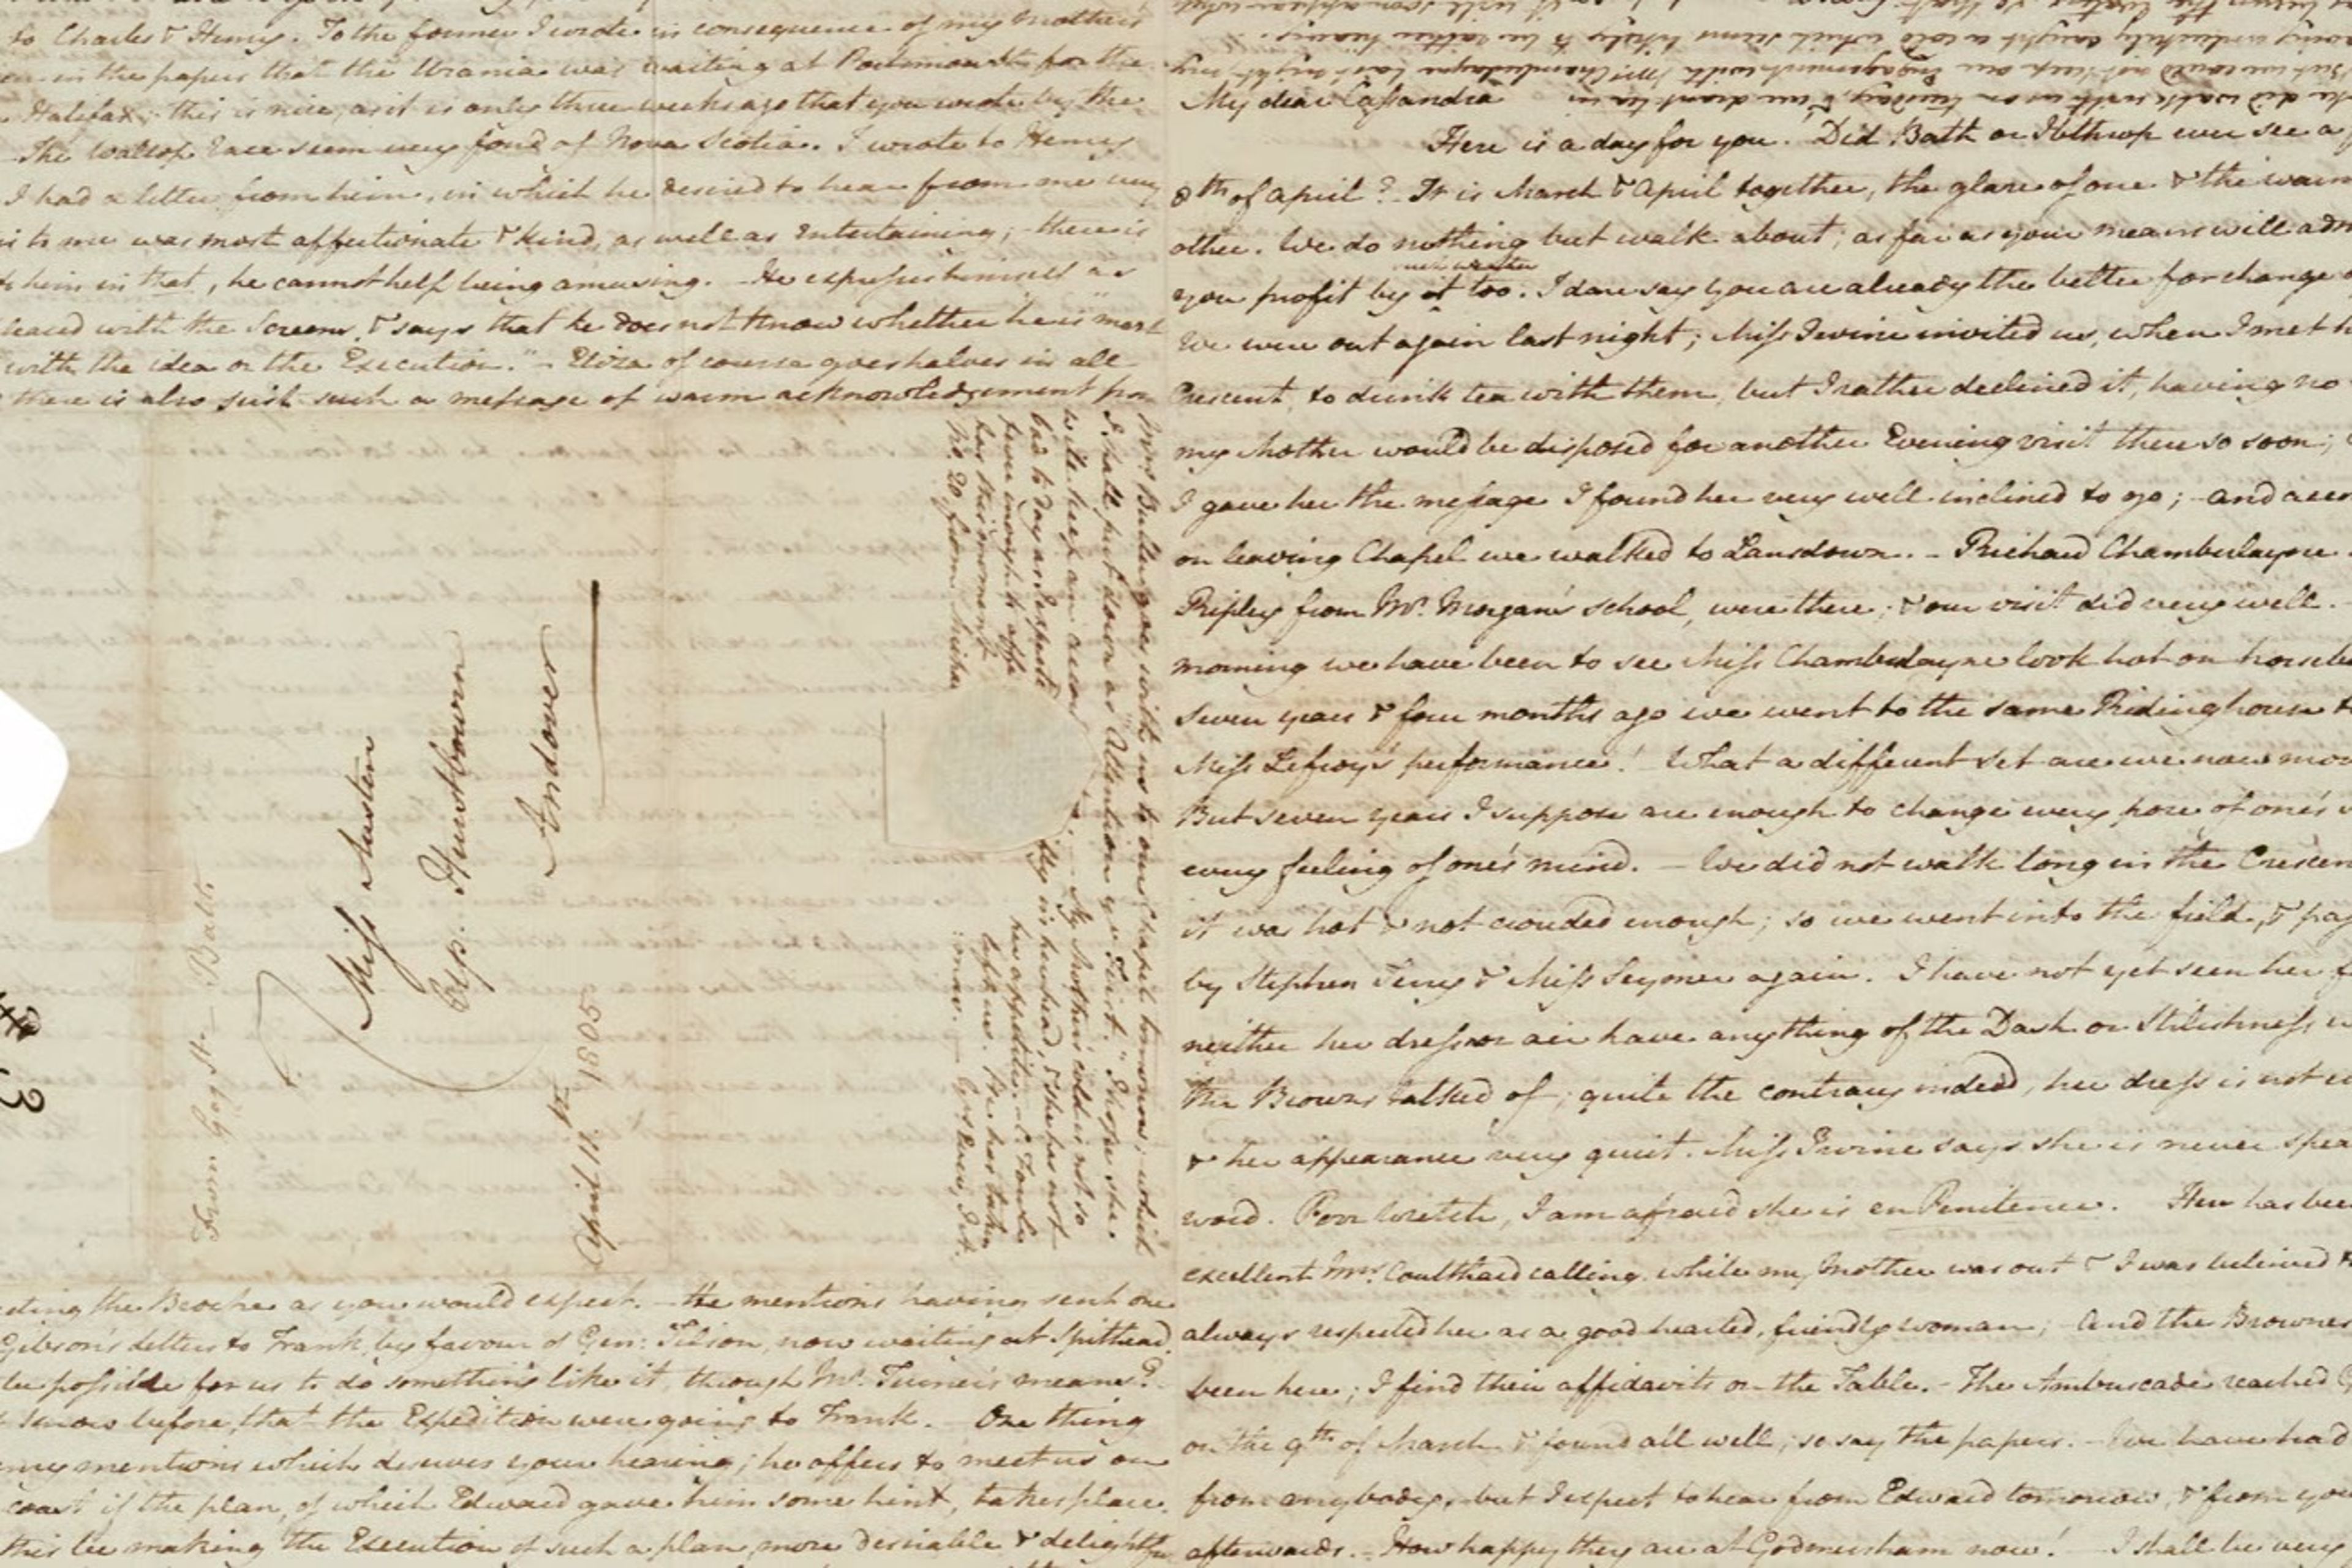 to Charles & Henry. To the former I wrote in consequence of my Mother's
in the papers that the Urania was waiting at Portsmouth for the
Halifax; this is nice, as it is only three weeks ago that you wrote by the
The Wallop race seem very fond of Nova Scotia. I wrote to Henry
I had a letter from him, in which he desired to hear from me very
to me was most affectionate & kind, as well as entertaining; – there is
him in that, he cannot help being amusing. – He expresses himself as
leased with the Screen, & says that he does not know whether he is "most
with the idea or the Execution." – Eliza of course goes halves in all
there is also just such a message of warm acknowledgement from
Miss Austen
Hurstbourn
Andover
From Gay St. – Bath.
April 11th 1805
Mrs Buller goes with us to our Chapel tomorrow; which
I shall put down as "Attention ye First." I hope she
will keep an accou – My Mother's cold is not so
bad to day as I expected in her head, & she has not
fever enough to affe her appetite. – C. Fowle
has this moment left us. He has taken
No. 20 from Michae :mas. –
ting the Broche as you would expect. – He mentions having sent one
Gibson's letters to Frank, by favour of Gen: Tilson, now waiting at Spithead
be possible for us to do something like it, through Mr. Turner's means?
know before, that the Expedition were going to Frank. – One thing
mentions which deserves your hearing; he offers to meet us on
coast if the plan, of which Edward gave him some hint, takes place.
this be making the Execution of such a plan, more desirable & delightfu
he did walk with us on tuesday, & we drank tea in
but we could not keep our Engagement with Mrs. Chamberlayne last night, my
having unluckily caught a cold which seems likely to be rather heavy.
My dear Cassandra
Here is a day for you. Did Bath or Ibthrop ever see a f
8th of April? – It is March & April together, the glare of one & the warm
other. We do nothing but walk about; as far as your means will adm
such weather
you profit by it too. I dare say You are already the better for change o
We were out again last night; Miss Irvine invited us, when I met h
Crescent, to drink tea with them, but I rather declined it, having no
my Mother would be disposed for another Evening visit there so soon;
I gave her the message I found her very well inclined to go; – and accor
on leaving Chapel we walked to Lansdown. – Richard Chamberlayne
Ripley from Mr. Morgan's school, were there; & our visit did very well.
morning we have been to see Miss Chamberlayne look hot on horseba
Seven years & four months ago we went to the same Ridinghouse t
Miss Lefroy's performance! – What a different set are we now mov
But seven years I suppose are enough to change every pore of one's s
every feeling of one's mind. – We did not walk long in the Crescen
it was hot & not crouded enough; so we went into the field, & pas
by Stephen Terry & Miss Seymer again. I have not yet seen her f
neither her dress or air have anything of the Dash or Stilishness w
the Browns talked of; quite the contrary indeed, her dress is not e
& her appearance very quiet. Miss Irvine says she is never spea
word. Poor Wretch, I am afraid she is en Penitence. Here has bee
excellent Mrs. Coulthard calling, while my Mother was out & I was beleived t
always respected her as a good hearted, friendly woman; – And the Brownes
been here; I find their affidavits on the Table. – The Ambuscade reached G
on the 9th of March & found all well; so say the papers. – We have had
from anybody, but I expect to hear from Edward tomorrow, & from you
afterwards. – How happy they are at Godmersham now! – I shall be very